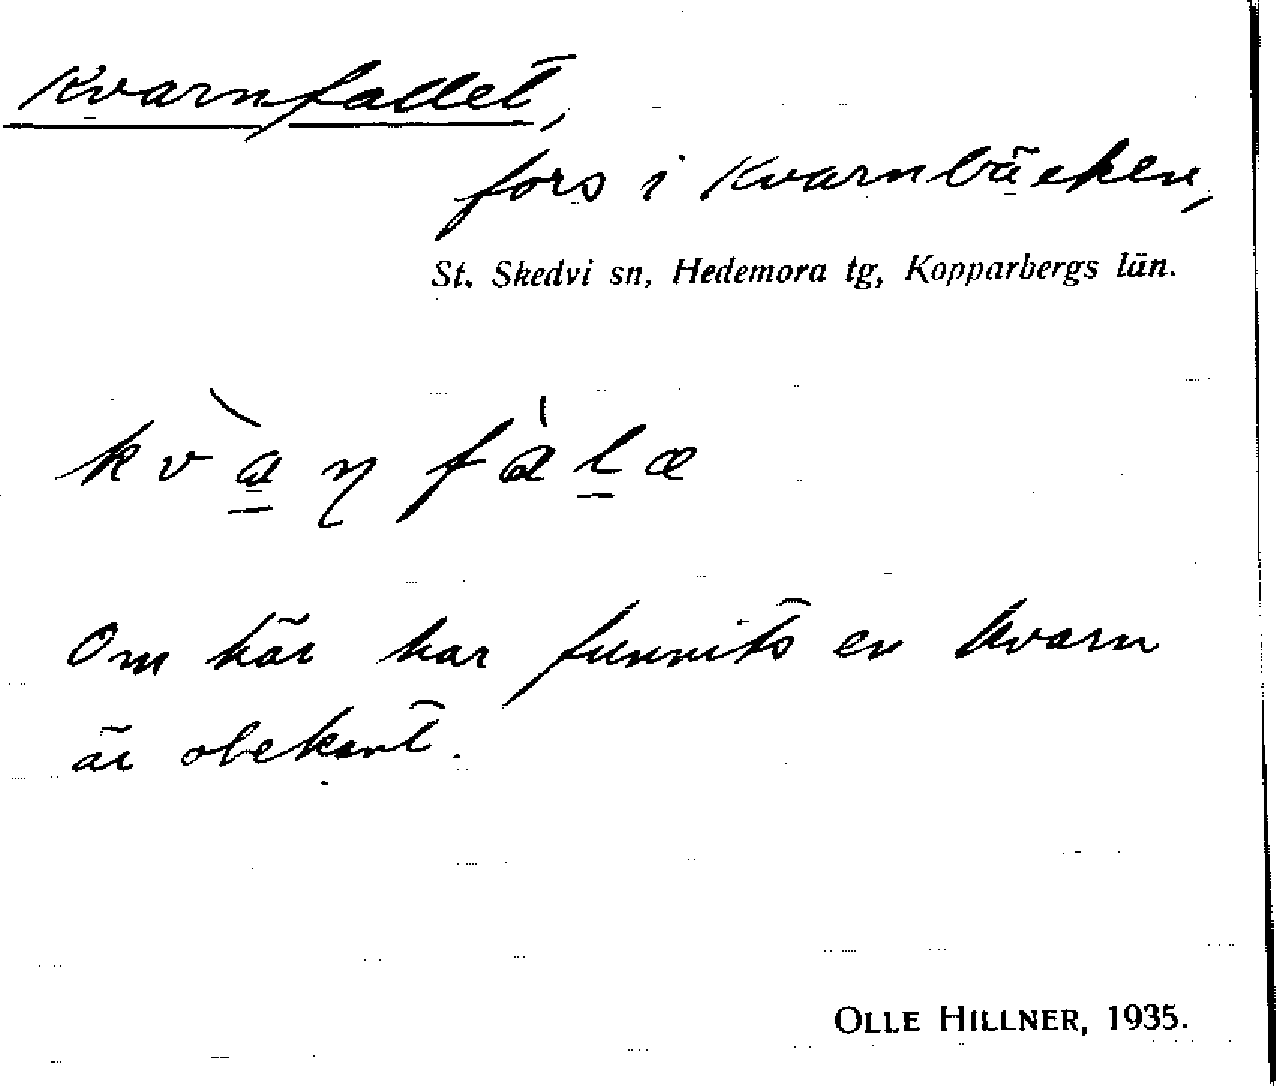 Kvarnfallet,
fors i Kvarnbäcken,
St. Skedvi sn, Hedemora tg, Kopparbergs län.
kvàṇfàlæ
Om här har funnits en kvarn
är obekant.
OLLE HILLNER, 1935.